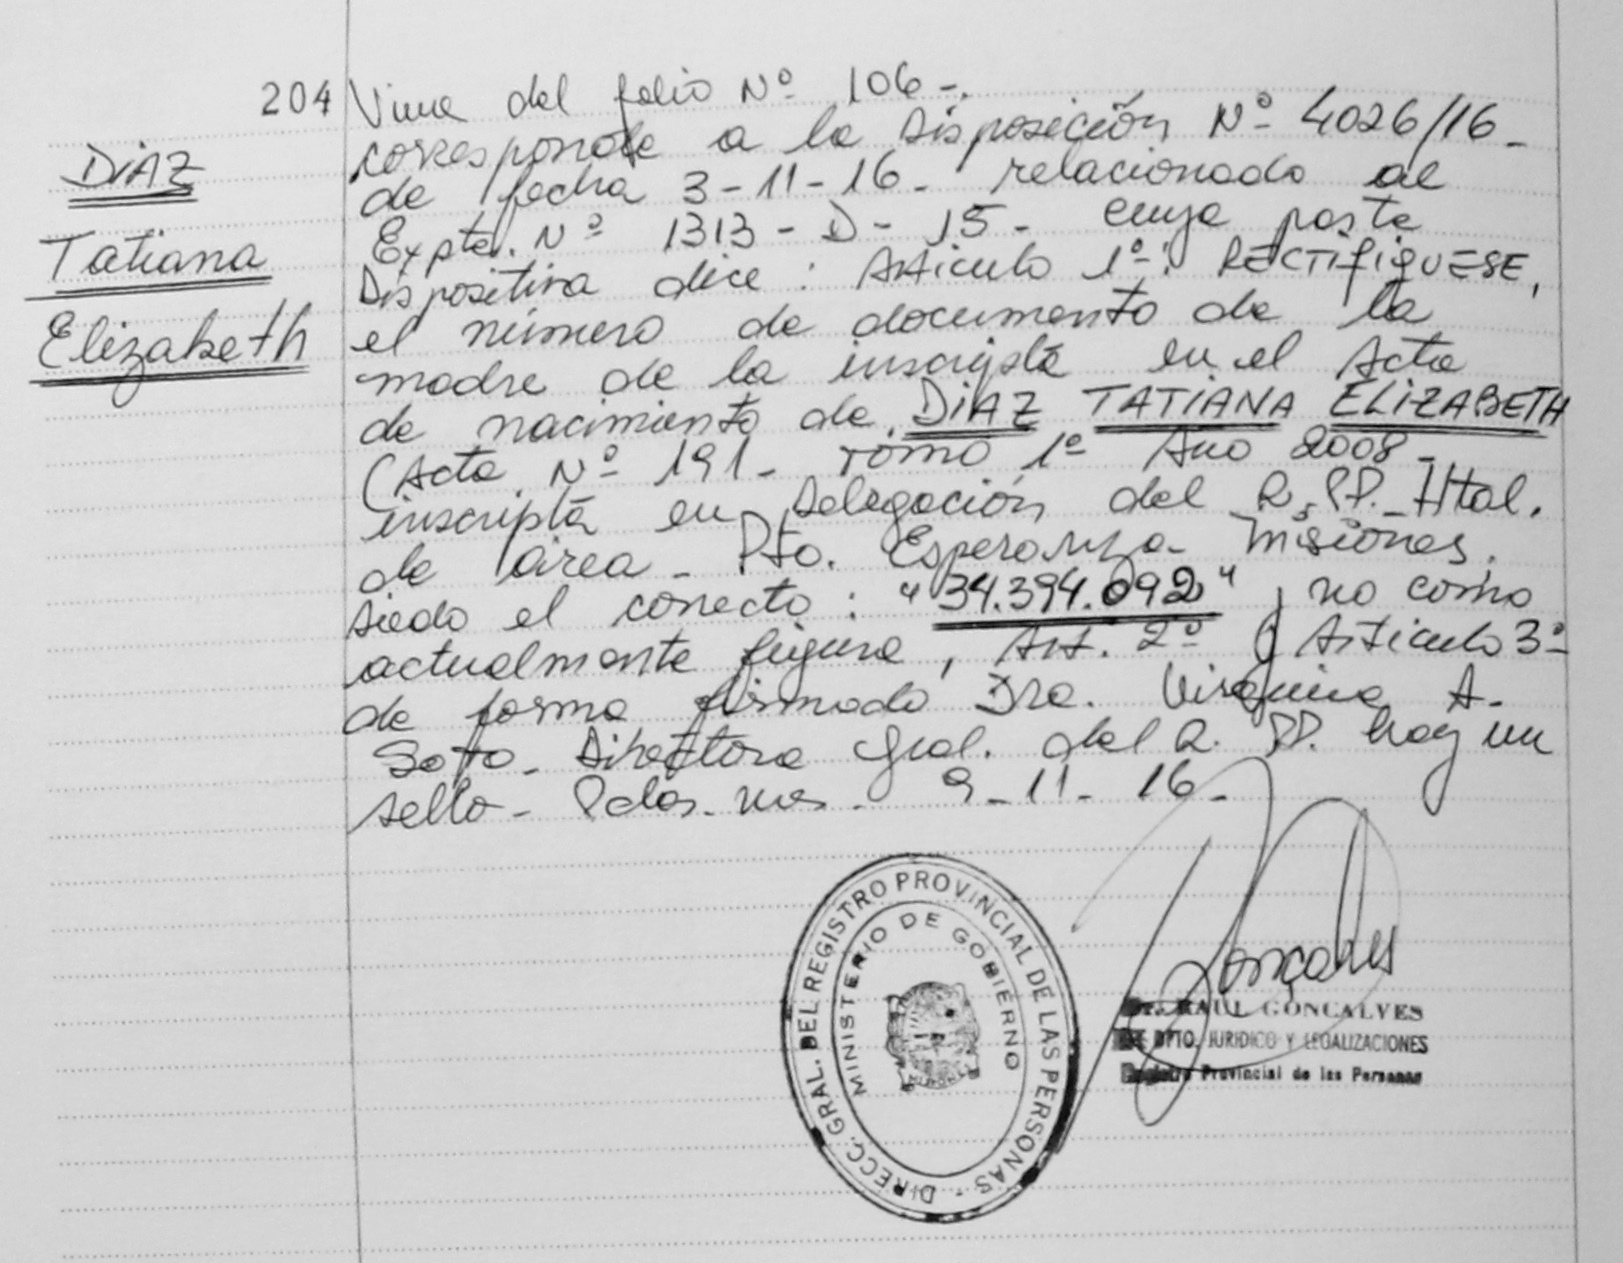 204
DiAZ
Tatiana
Elizabeth
Viene del folio Nº 106-.
corresponde a la Disposición Nº 4026/16-
de fecha 3-11-16- relacionado al
Expte. Nº 1313-D-15- cuya parte
Dispositiva dice: Artículo 1º: RECTIFIQUESE,
el número de documento de la
madre de la inscripta en el Acta
de nacimiento de DiAZ TATIANA ELIZABETH
(Acta Nº 191- Tomo 1º Año 2008-
inscripta en Delegación del R.PP. Htal.
de área- Pto. Esperanza- Misiones.
siedo el correcto: "34.394.092" y no como
actualmente figura, Art. 2º y Artículo 3º
de forma firmado Dra. Virginia A.
Soto- Directora Gral. del R. PP. hay un
sello- Pdas. mes- 9-11-16-
DIRECC. GRAL. DEL REGISTRO PROVINCIAL DE LAS PERSONAS -
MINISTERIO DE GOBIERNO
Gonçalves
Dr. RAUL GONCALVES
DPTO. JURIDICO Y LEGALIZACIONES
Registro Provincial de las Personas